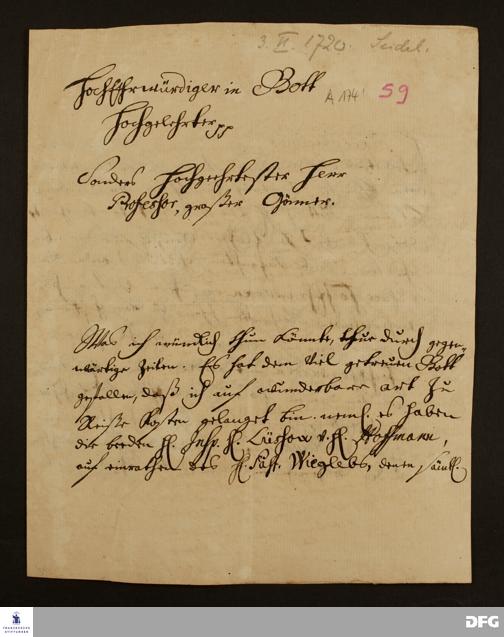 3. II. 1720. Seidel.
A 174 59
HochEhrwürdiger in Gott
Hochgelehrter pp
Sonders Hochgeehrtester Herr
Professor, großer Gönner.
Was ich mündlich thun könte, thue durch gegen-
wärtige Zeilen. Es hat dem viel getreuen Gott
gefallen, daß ich auf wunderbare art zu
Reise Kosten gelanget bin. neml. es haben
die beeden H. Insp. H. Lüshow v. H. Hofmann,
auf einrathen des H. Past. Wieglebs, denen sämtl.
FRANCKESCHE
STIFTUNGEN
DFG